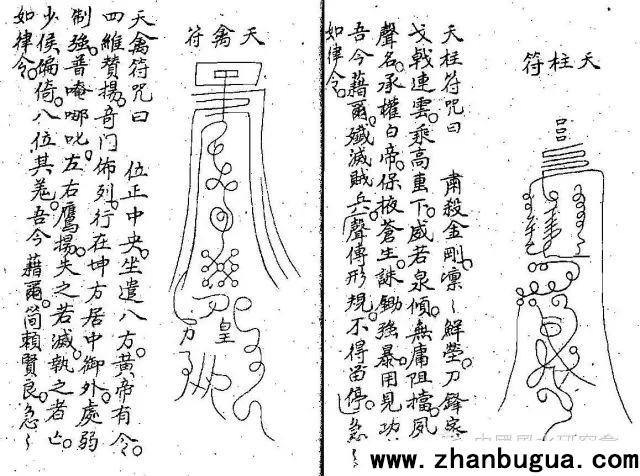 天柱符
天柱符咒曰 肅殺金剛凜〻解瑩刀鋒
戈戟連雲乘高重下威若泉傾無庸阻擋夙
聲名承權白帝保掖蒼生誅鋤強暴用見功
吾今藉爾殲滅賊兵聲傳形規不得留停急〻
如律令
天禽符
天禽符咒曰 位正中央坐遣八方黃帝有令
四維贊揚奇門佈列行在坤方居中御外處弱
制強普唵哪叱左右鷹揚失之若滅執之者亡
少候偏倚八位其羗吾今藉爾簡賴賢良急〻
如律令
皇
www.zhanbugua.com